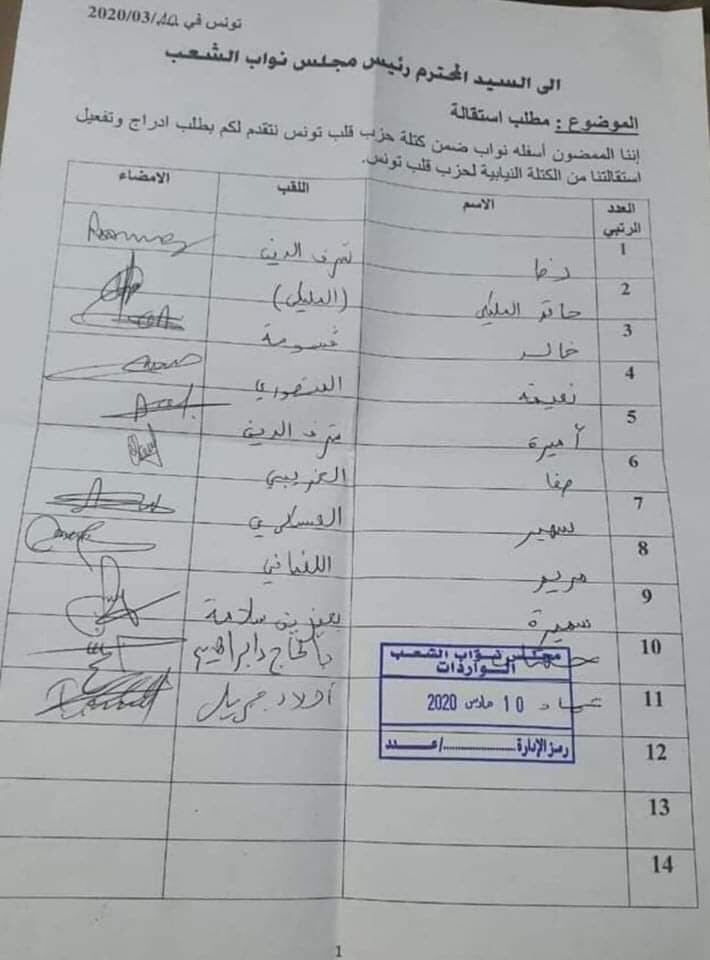 تونس في 10/03/2020
الى السيد المحترم رئيس مجلس نواب الشعب
الموضوع : مطلب استقالة
إننا الممضون أسفله نواب ضمن كتلة حزب قلب تونس نتقدم لكم بطلب ادراج وتفعيل
استقالتنا من الكتلة النيابية لحزب قلب تونس.
العدد الرتبي الاسم اللقب الامضاء
1 رضا شرف الدين
2 حاتم المليكي (المليكي)
3 خالد قسومة
4 نعيمة المنصوري
5 أميرة شرف الدين
6 صفا الغريبي
7 سهير العسكري
8 مريم اللغماني
9 سميرة سلامة
10 بالحاج
11 عماد أولاد جبريل
12
13
14
مجلس نواب الشعب
الواردات
10 مارس 2020
رمز الإدارة ............/عـــدد
1